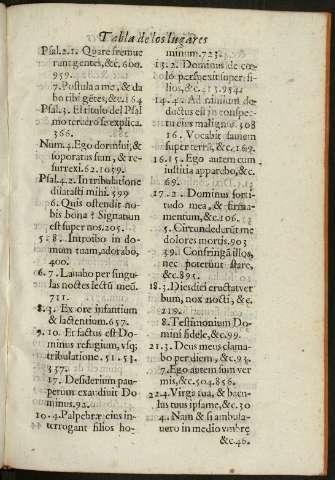 Tabla de los lugares
Psal.2.1. Quare fremue
rant gentes, &c.600.
959.
7. Postula a me, & da
bo tibi gẽtes, &c.164
Psal.3. El titulo del Psal
mo tercero se explica.
366.
Num.4. Ego dormiui, &
soporatus sum, & re-
surrexi.62.1039.
Psal.4.2. In tribulatione
dilatasti mihi.399
6. Quis ostendit no-
bis bona? Signatum
est super nos.205.
5.8. Introibo in do-
mum tuam, adorabo,
400.
6.7. Lauabo per singu-
las noctes lectũ meũ.
711.
8.3. Ex ore infantium
& lactentium.657.
9.10. Et factus est Do-
minus refugium, vsq;
tribulatione.51.53.
357.
17. Desiderium pau-
perum exaudiuit Do
minus.92.
10.4. Palpebræ eius in-
terrogant filios ho-
minum.723.
13.2. Dominus de cœ-
lo perspexit super fi-
lios, &c.13.954.
14.4. Ad nihilum de-
ductus est in conspec-
tu eius malignus.508
16. Vocabit
super terrã, &c.169.
16.15. Ego autem cum
iustitia apparebo, &c.
69.
17.2. Dominus forti-
tudo mea, & firma-
mentum, &c.106.
5. Circundederũt me
dolores mortis.903
39. Confringã illos,
nec poterunt stare,
&c.895.
18.3. Dies diei eructat ver
bum, nox nocti, &c.
219.
8. Testimonium Do-
mini fidele, &c.99.
21.3. Deus meus clama-
bo per diem, &c.93.
7. Ego autem sum ver
mis, &c.504.856.
22.4. Virga tua, & bacu-
lus tuus ipsa me, &c.30
4. Nam & si ambula-
uero in medio vmbre
&c.46.